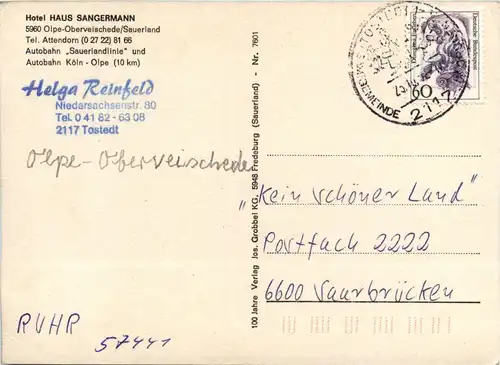 Hotel HAUS SANGERMANN
5960 Olpe-Oberveischede/Sauerland
Tel. Attendorn (0 27 22) 81 66
Autobahn „Sauerlandlinie" und
Autobahn Köln - Olpe (10 km)
Helga Reinfeld
Niedersachsenstr. 80
Tel. 0 41 82 - 63 08
2117 Tostedt
Olpe-Oberveischede
RUHR
57441
100 Jahre Verlag Jos. Grobbel KG, 5948 Fredeburg (Sauerland) - Nr. 7601
60
GEMEINDE 2117
"Kein schöner Land"
Postfach 2222
6600 Saarbrücken